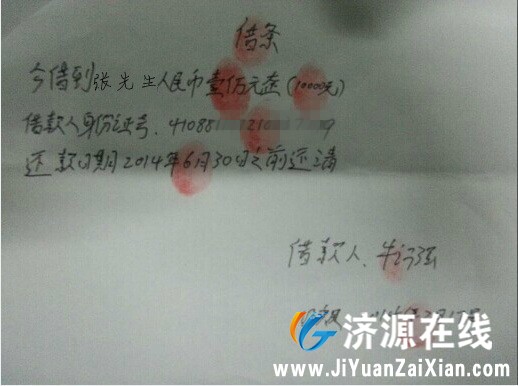 借条
今借到张先生人民币壹万元整（10000元）
借款人身份证号．41088 1210 9
还款日期2014年6月30日之前还清
借款人．牛
济源在线
www.JiYuanZaiXian.com